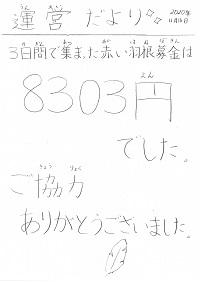 運営だより
2020年
11月16日
3日間で集まった赤い羽根募金は
8303円
でした。
ご協力
ありがとうございました。